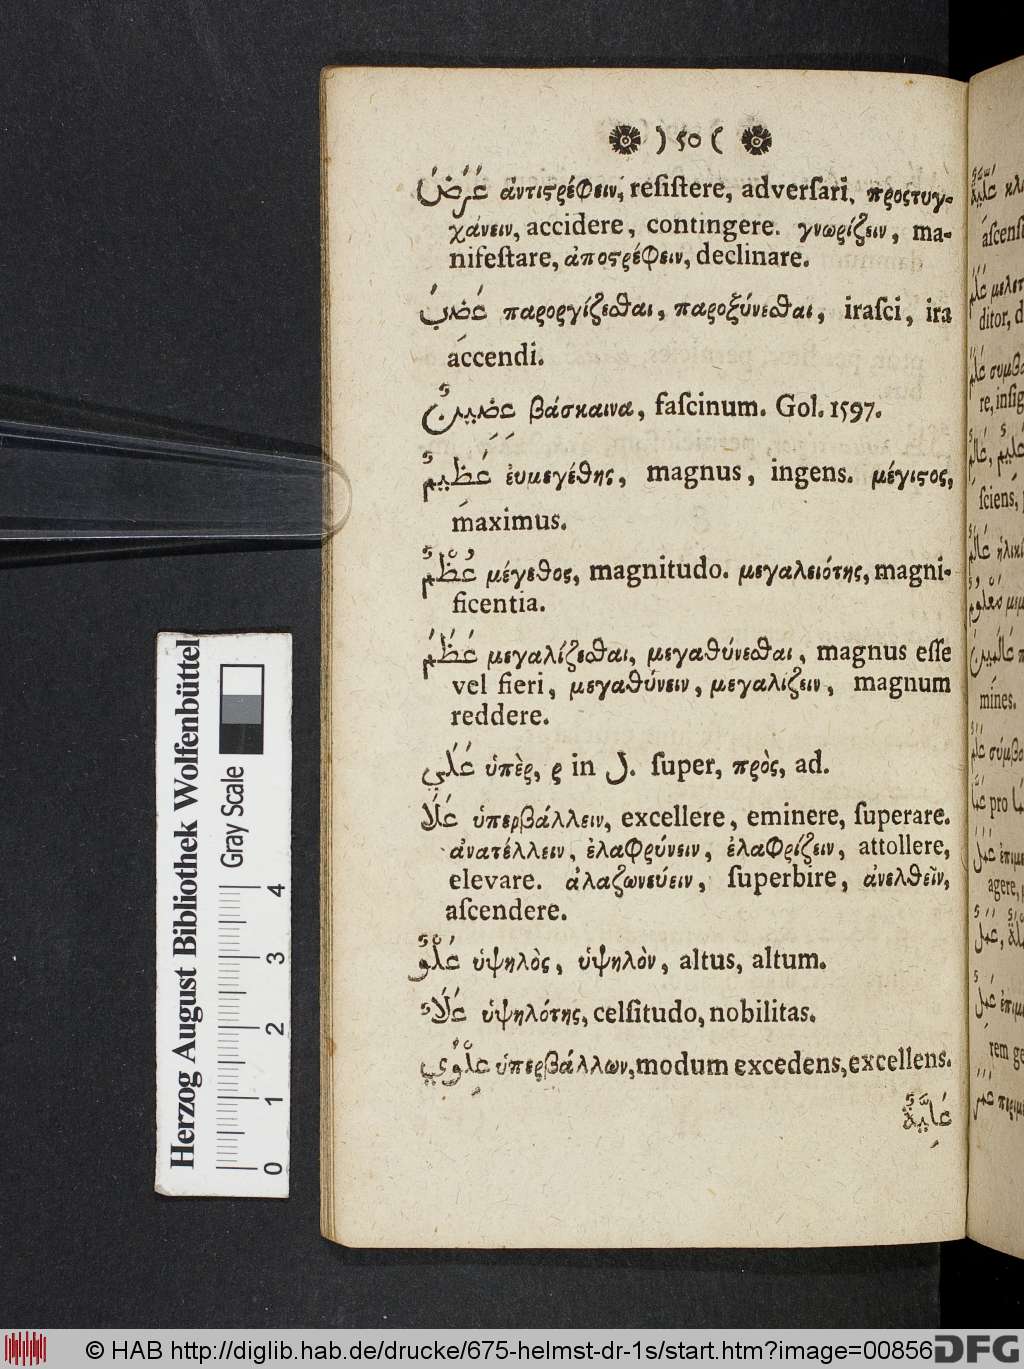 ) 50 (
عَرَضَ ἀντιστρέφειν, resiſtere, adverſari, προστυγ-
χάνειν, accidere, contingere. γνωρίζειν, ma-
nifeſtare, ἀποστρέφειν, declinare.
غَضِبَ παροργίζεσθαι, παροξύνεσθαι, iraſci, ira
accendi.
βάσκαινα, faſcinum. Gol. 1597.
عَظِيمٌ ἐυμεγέθης, magnus, ingens. μέγιστος,
maximus.
عُظْمٌ μέγεθος, magnitudo. μεγαλειότης, magni-
ficentia.
عَظَمَ μεγαλίζεσθαι, μεγαθύνεσθαι, magnus eſſe
vel fieri, μεγαθύνειν, μεγαλίζειν, magnum
reddere.
عَلَي ὑπὲρ, ρ in J. ſuper, πρὸς, ad.
عَلَا ὑπερβάλλειν, excellere, eminere, ſuperare.
ἀνατέλλειν, ἐλαφρύνειν, ἐλαφρίζειν, attollere,
elevare. ἀλαζωνεύειν, ſuperbire, ἀνελθεῖν,
aſcendere.
عَلْوٌ ὑψηλὸς, ὑψηλὸν, altus, altum.
عَلَاء ὑψηλότης, celſitudo, nobilitas.
عِلْوِي ὑπερβάλλων, modum excedens, excellens.
عَلِيَّةٌ
Herzog August Bibliothek Wolfenbüttel
Gray Scale
0 1 2 3 4
© HAB http://diglib.hab.de/drucke/675-helmst-dr-1s/start.htm?image=00856
DFG